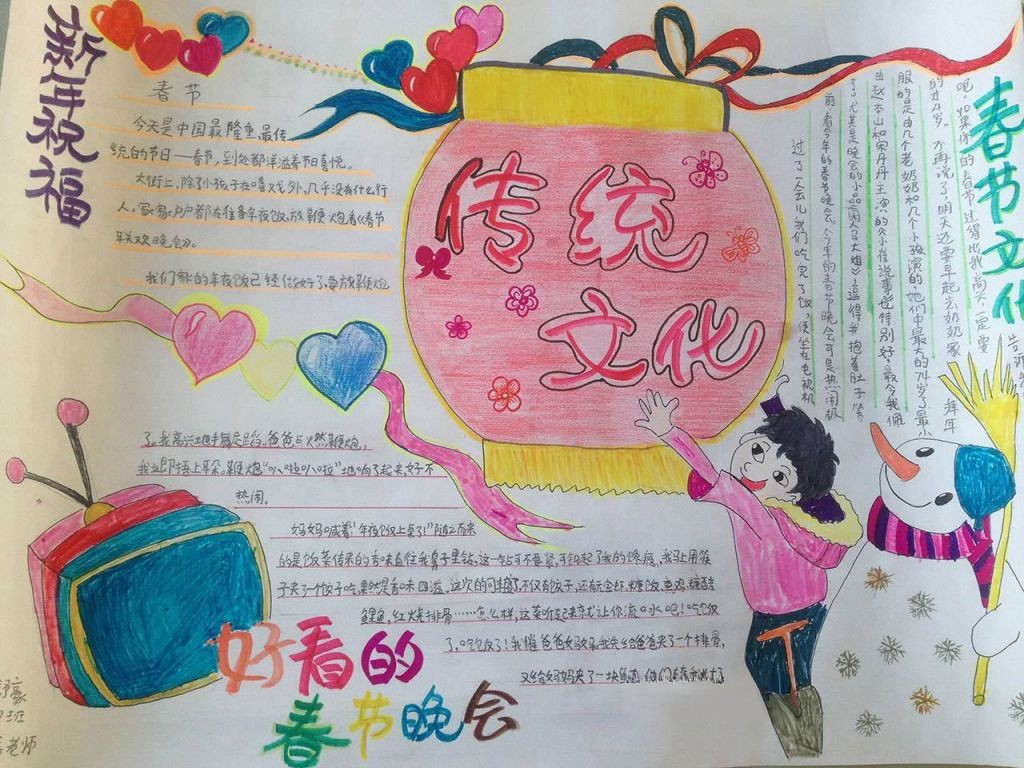 新年祝福
春节
今天是中国最隆重、最传
统的节日——春节,到处都洋溢着节日喜悦。
大街上,除了小孩子在嘻戏外,几乎没有什么行
人,家家户户都在准备年夜饭,放鞭炮看《春节
联欢晚会》。
我们家的年夜饭已经做好了,要放鞭炮
了。我高兴地手舞足蹈。爸爸点火燃鞭炮,
我立即捂上耳朵。鞭炮“噼啦噼啦”地响了起来好不
热闹。
妈妈喊着“年夜饭上桌了!”随之而来
的是饭菜传来的香味直往我鼻子里钻,这一钻可不要紧,可勾起了我的馋瘾,我马上用筷
子夹了一个饺子吃果然是香味四溢。这次的可丰盛了不仅有饺子,还有元宝虾、糖饭、熏鸡、糖醋
鲤鱼,红烧排骨……怎么样,这菜听起来就让你流口水吧!吃饭
了,吃饭了!我催爸爸妈妈,我先给爸爸夹了一个排骨,
又给妈妈夹了一块鱼
传统
文化
好看的
春节晚会
春节文化
过了一会儿我们吃完了饭,便坐在电视机
前看今年的春节晚会。今年的春节晚会可是热闹极
了,尤其是晚会的小品《闲人马大姐》逗得我抱着肚子笑
由赵本山和宋丹丹主演的《小崔说事》也特别好,最令我佩
服的是由几个老奶奶和几个小孩演的,她们中最大的74岁了最小
的才4岁。不再说了,明天还要早起去奶奶家拜年
呢。如果你的春节过得比我高兴一定要
告诉
班
老师